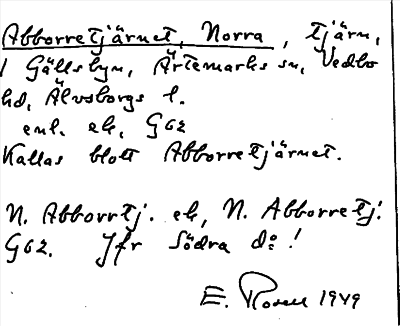 Abborretjärnet, Norra, tjärn,
i Gällsbyn, Ärtemarks sn, Vedbo
hd, Älvsborgs l.
enl. ek. G62
Kallas blott Abborretjärnet.
N. Abborrtj. ek, N. Abborretj.
G62. Jfr Södra do!
E. Rosell 1949